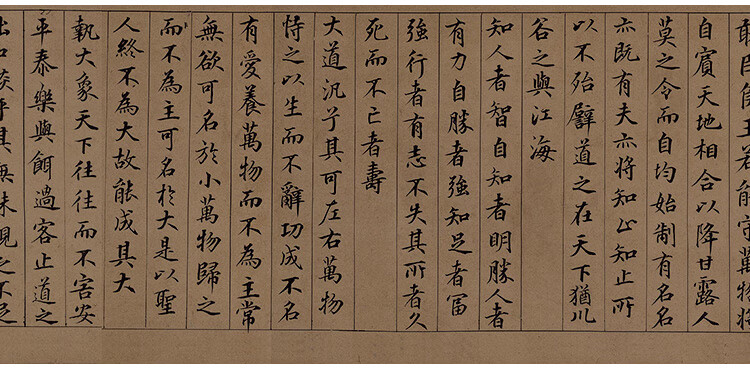 敢臣侯王若能守萬物將
自賓天地相合以降甘露人
莫之令而自均始制有名名
亦既有夫亦將知止知止所
以不殆譬道之在天下猶川
谷之與江海
知人者智自知者明勝人者
有力自勝者強知足者富
強行者有志不失其所者久
死而不亡者壽
大道汎兮其可左右萬物
恃之以生而不辭功成不名
有愛養萬物而不為主常
無欲可名於小萬物歸之
而不為主可名於大是以聖
人終不為大故能成其大
執大象天下往往而不害安
平泰樂與餌過客止道之
出口淡乎其無味視之不足